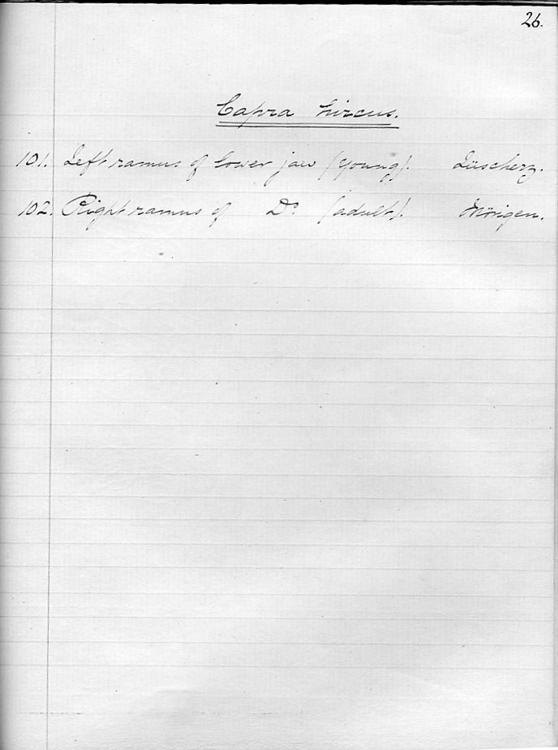 26.
Capra hircus.
101. Left ramus of lower jaw (young). Lüscherz.
102. Right ramus of Do (adult). Mörigen.